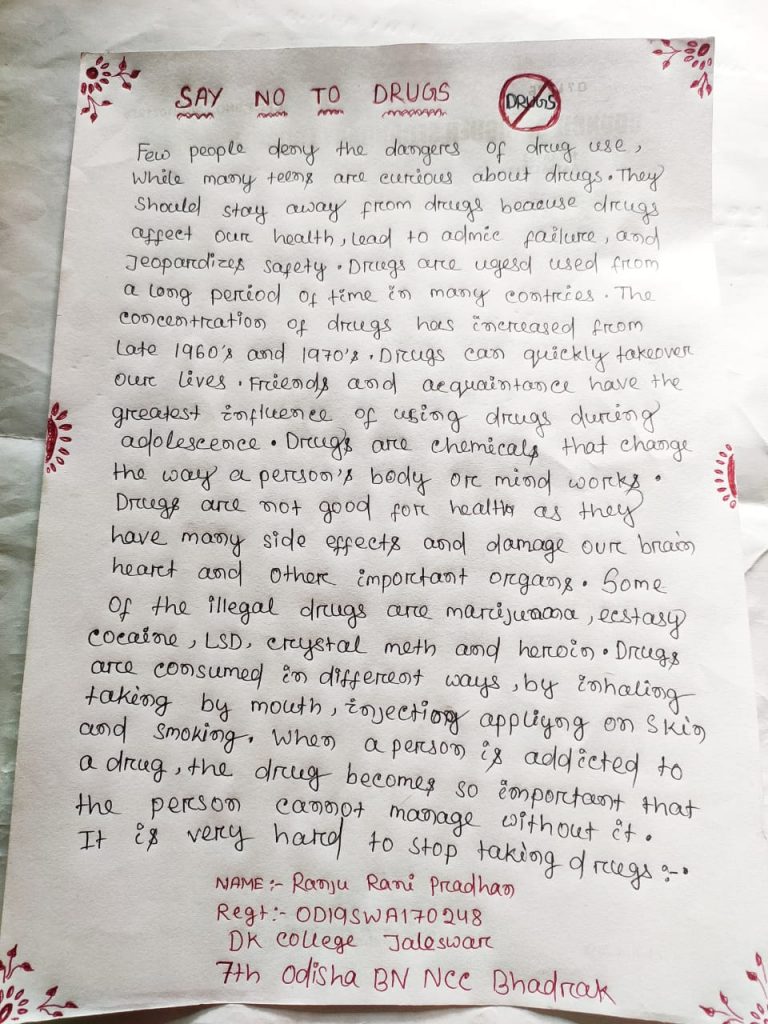 SAY NO TO DRUGS DRUGS
Few people deny the dangers of drug use,
While many teens are curious about drugs. They
Should stay away from drugs beacuse drugs
affect our health, lead to admic failure, and
Jeopardizes safety. Drugs are ugesd used from
a long period of time in many contries. The
concentration of drugs has increased from
late 1960's and 1970's. Drugs can quickly takeover
our lives. Friends and acquaintance have the
greatest influence of using drugs during
adolescence. Drugs are chemicals that change
the way a person's body or mind works.
Drugs are not good for health as they
have many side effects and damage our brain
heart and other important organs. Some
Of the illegal drugs are marijuana, ecstasy
cocaine, LSD, crystal meth and heroin. Drugs
are consumed in different ways, by inhaling
taking by mouth, injecting appliyng on Skin
and smoking. When a person is addicted to
a drug, the drug becomes so important that
the person cannot manage without it.
It is very hard to stop taking drugs :-.
NAME :- Ranju Rani Pradhan
Regt :- OD19SWA170248
DK College Jaleswar
7th Odisha BN NCC Bhadrak